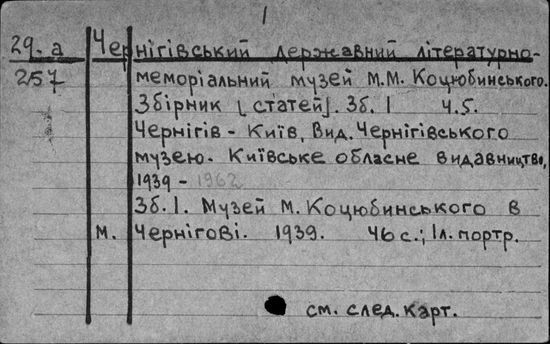 1
29-а Чернігівський державний літературно-
257 меморіальний музей М.М. Коцюбинського.
Збірник [статей]. Зб. 1 Ч.5.
Чернігів - Київ, Вид. Чернігівського
музею - Київське обласне видавництво,
1939 - 1962
Зб. 1. Музей М. Коцюбинського в
м. Чернігові. 1939. 46 с.; 1л. портр.
см. след. карт.